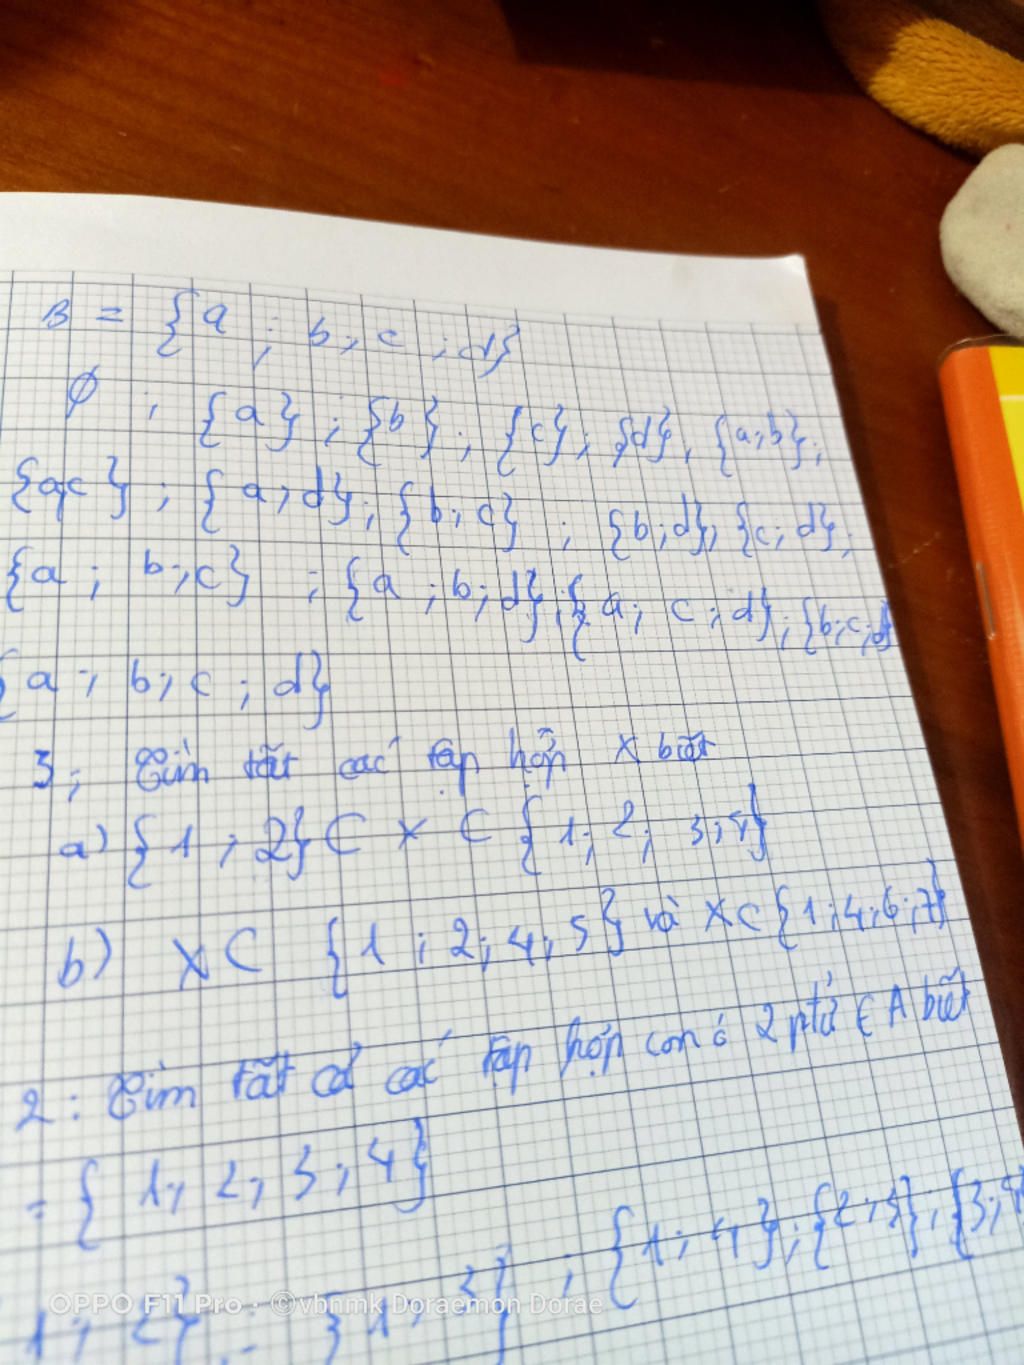 B = {a ; b ; c ; d}
∅ ; {a} ; {b} ; {c} ; {d} ; {a;b} ;
{a;c} ; {a ; d} ; {b ; c} ; {b ; d} ; {c ; d} ;
{a ; b ; c} ; {a ; b ; d} ; { a ; c ; d} ; {b ; c ; d
{a ; b ; c ; d}
3, Tìm tất các tập hợp X biết
a) {1 ; 2} ⊂ X ⊂ {1 ; 2 ; 3 ; 4}
b) X ⊂ {1 ; 2 ; 4 ; 5} và X ⊂ {1 ; 4 ; 6 ; 7}
2 : Tìm tất cả các tập hợp con ó 2 ptử ∈ A biết
= {1 ; 2 ; 3 ; 4}
1 ; 2} ; {1 ; 3} ; {1 ; 4} ; {2 ; 3} ; {3 ; 4
OPPO F11 Pro · ©vbnmk Doraemon Dorae